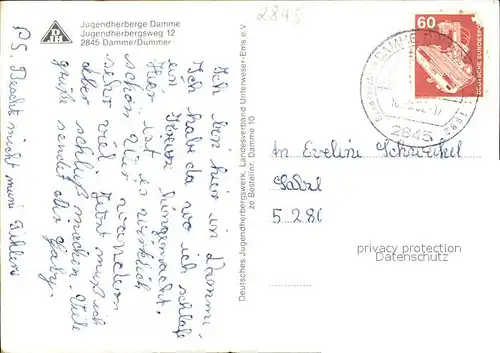 2845
Jugendherberge Damme
Jugendherbergsweg 12
2845 Damme/Dümmer
DJH
60
DEUTSCHE BUNDESPOST
DAMME
2845
Ich bin hier in Damme.
Ich habe da wo ich schlafe
ein Kreuz hingemacht.
Hier ist es wirklich
schön. Wir wandern
sehr viel. Jetzt muß ich
aber schluß machen. Viele
grüße sendet dir Gaby.
PS. Beachte nicht meine Fehler
Deutsches Jugendherbergswerk, Landesverband Unterweser-Ems e.V.
ze Bestellnr. Damme 10
An Eveline
5 286
privacy protection
Datenschutz